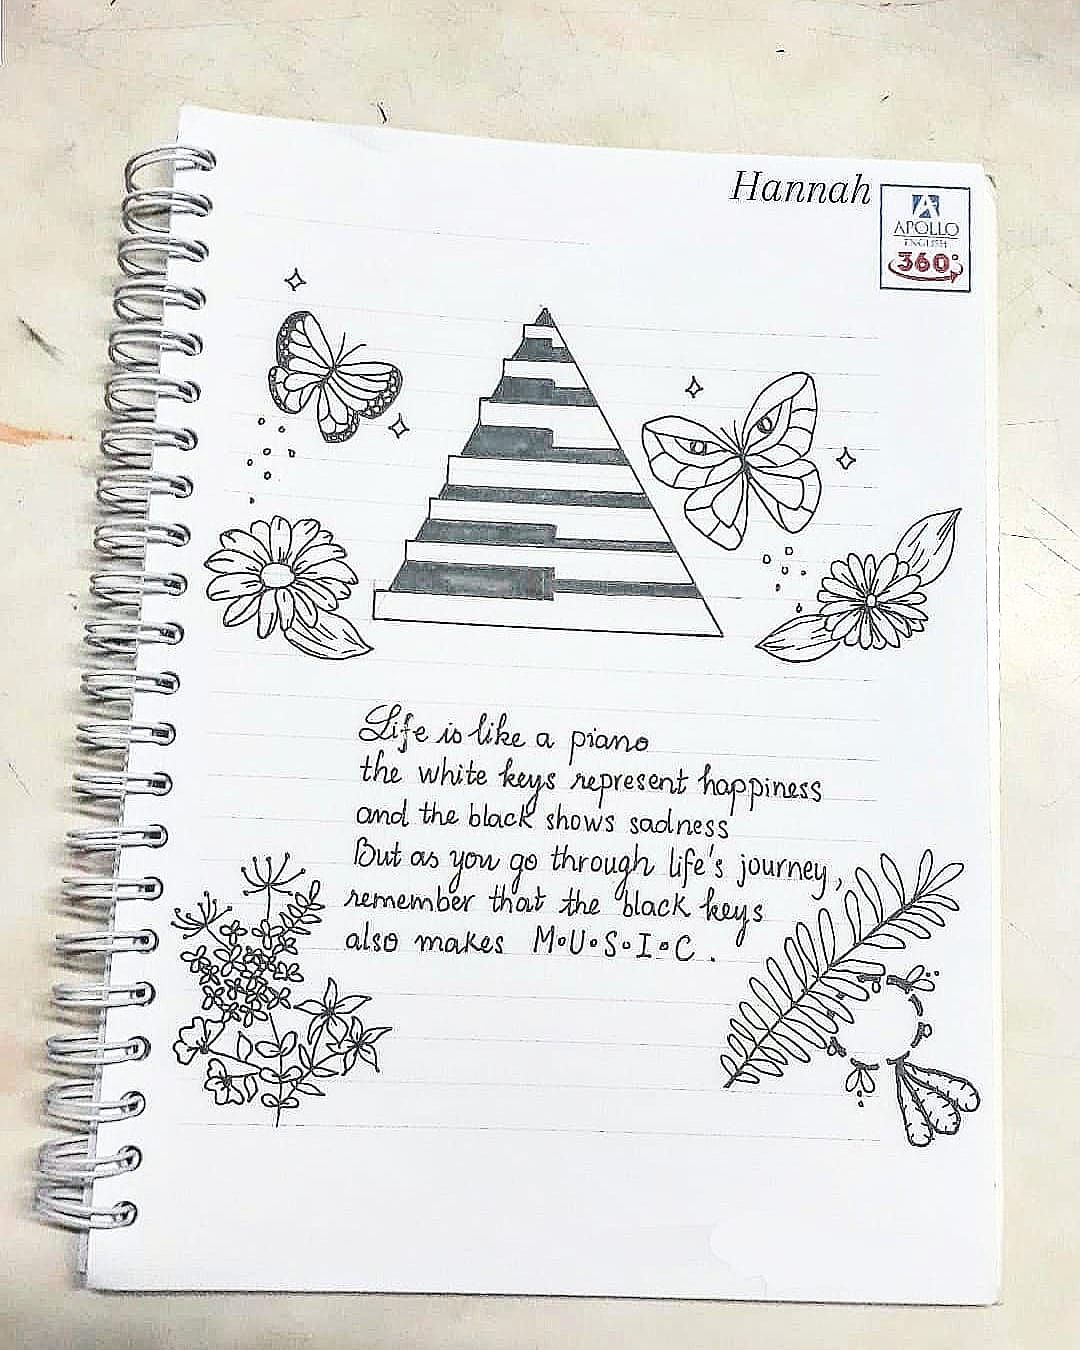 Hannah
APOLLO
ENGLISH
360°
Life is like a piano
the white keys represent happiness
and the black shows sadness
But as you go through life's journey,
remember that the black keys
also makes M•U•S•I•C.